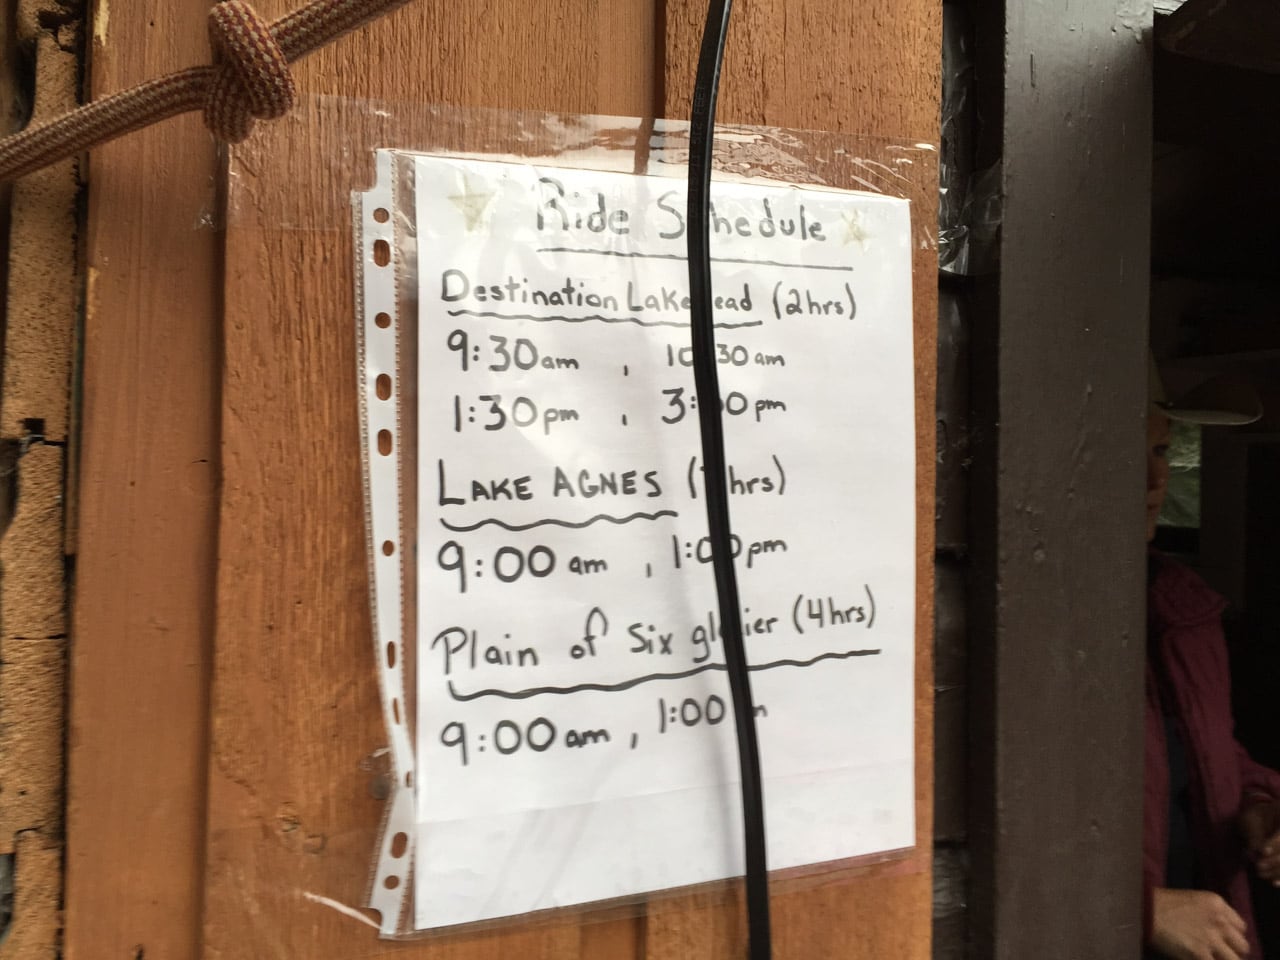 Ride Schedule
Destination Lakehead (2hrs)
9:30am , 10:30am
1:30pm ,
LAKE AGNES ( hrs)
9:00 am , 1:00pm
Plain of Six glacier (4hrs)
9:00am , 1:00pm